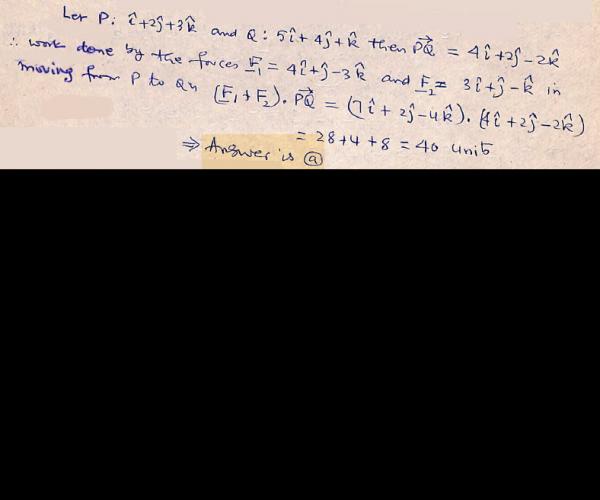 Let P: î+2ĵ+3k̂ and Q: 5î+4ĵ+k̂ then PQ⃗ = 4î+2ĵ-2k̂
∴ work done by the forces F₁ = 4î+ĵ-3k̂ and F₂= 3î+ĵ-k̂ in
moving from P to Q is (F₁+F₂). PQ⃗ = (7î+2ĵ-4k̂). (4î+2ĵ-2k̂)
= 28+4+8 = 40 unit
⇒ Answer is ⓐ